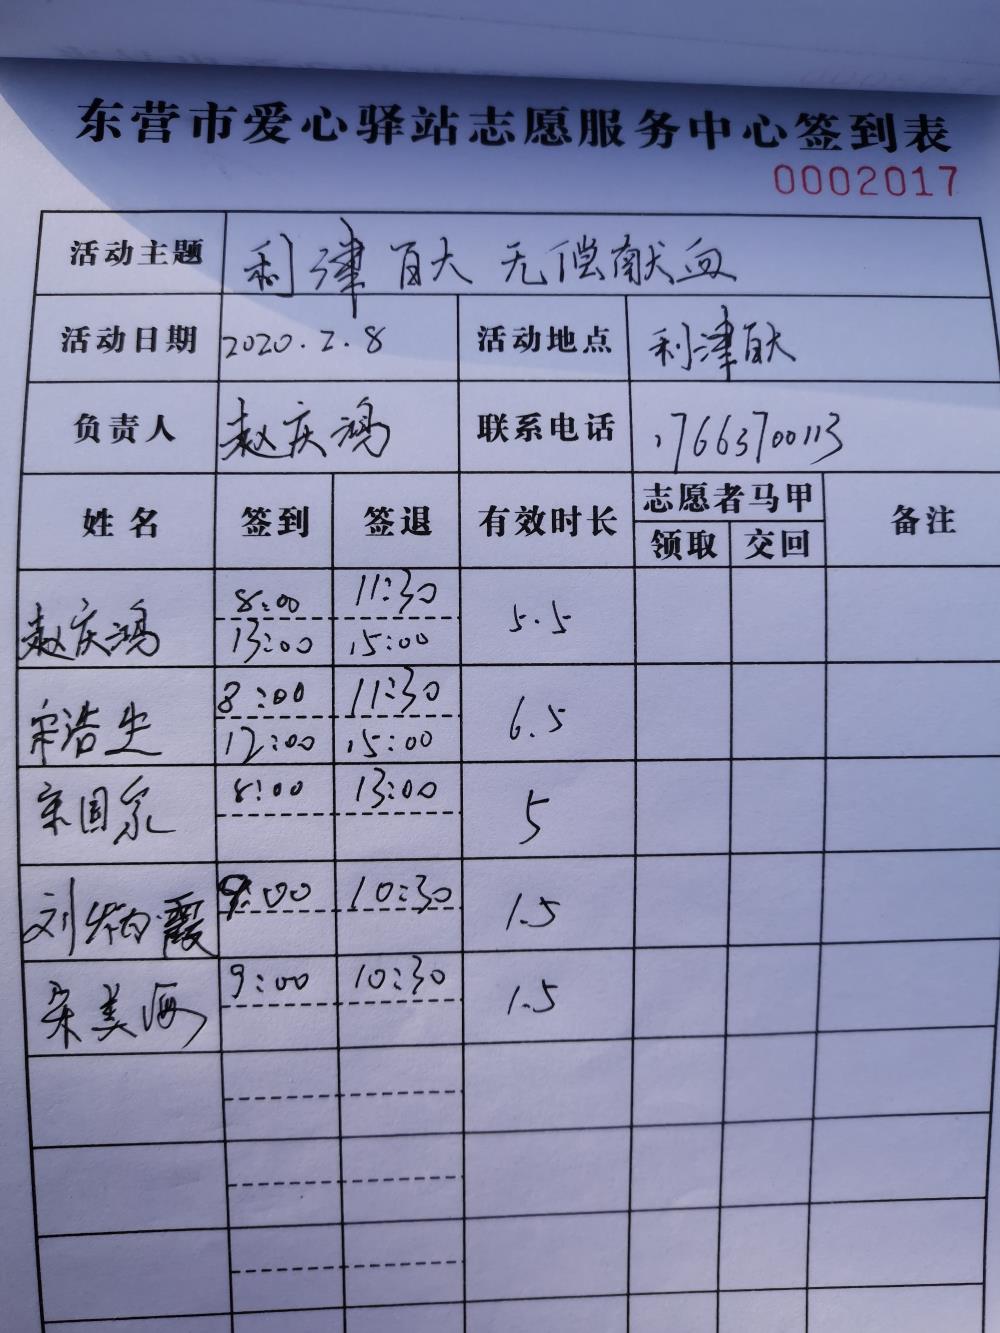 东营市爱心驿站志愿服务中心签到表
0002017
活动主题 利津百大 无偿献血
活动日期 2020.2.8 活动地点 利津百大
负责人 赵庆鸿 联系电话 17663700113
姓名 签到 签退 有效时长 志愿者马甲 备注
领取 交回
赵庆鸿 8:00 11:30 5.5
13:00 15:00
宋浩生 8:00 11:30 6.5
12:00 15:00
宋国家 8:00 13:00 5
刘炳霞 9:00 10:30 1.5
宋美海 9:00 10:30 1.5